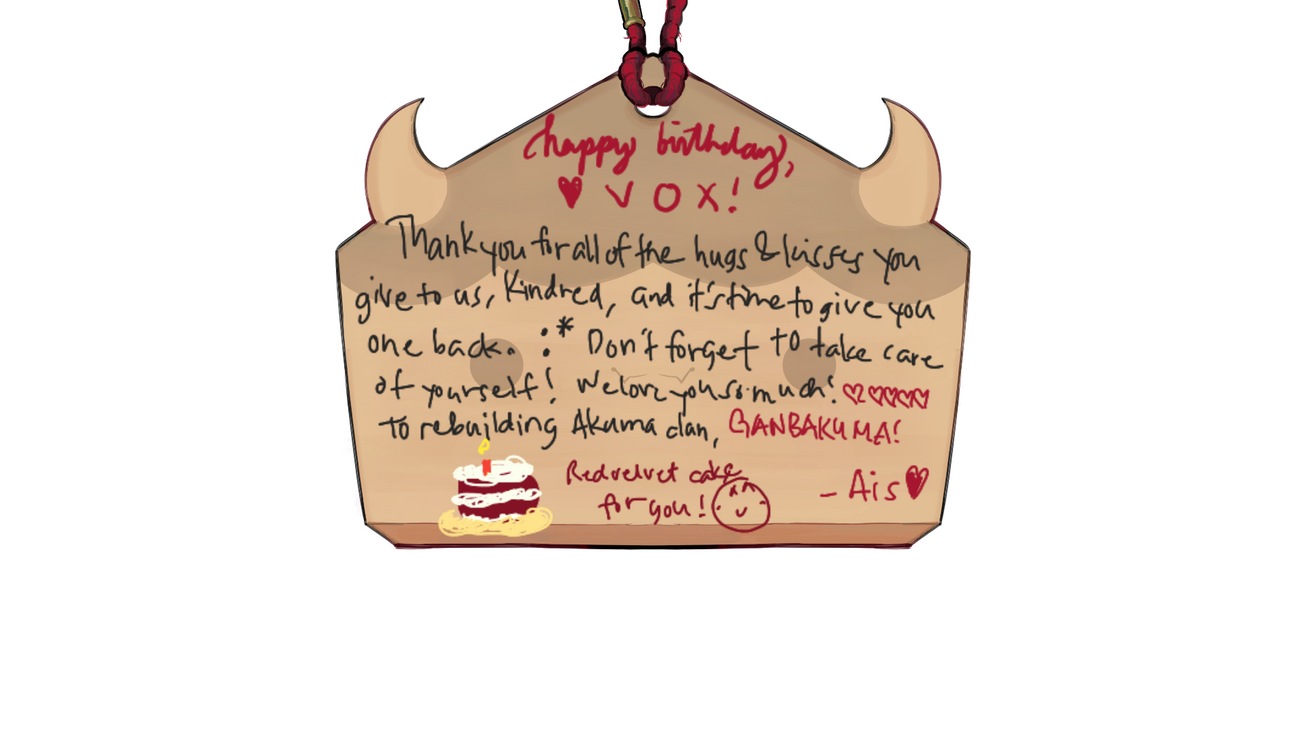 happy birthday,
♥ VOX!
Thank you for all of the hugs & kisses you
give to us, Kindred, and it's time to give you
one back. :* Don't forget to take care
of yourself! We love you so much! ♡♡♡♡♡
to rebuilding Akuma clan, GANBAKUMA!
Red velvet cake
for you!
- Ais ♥